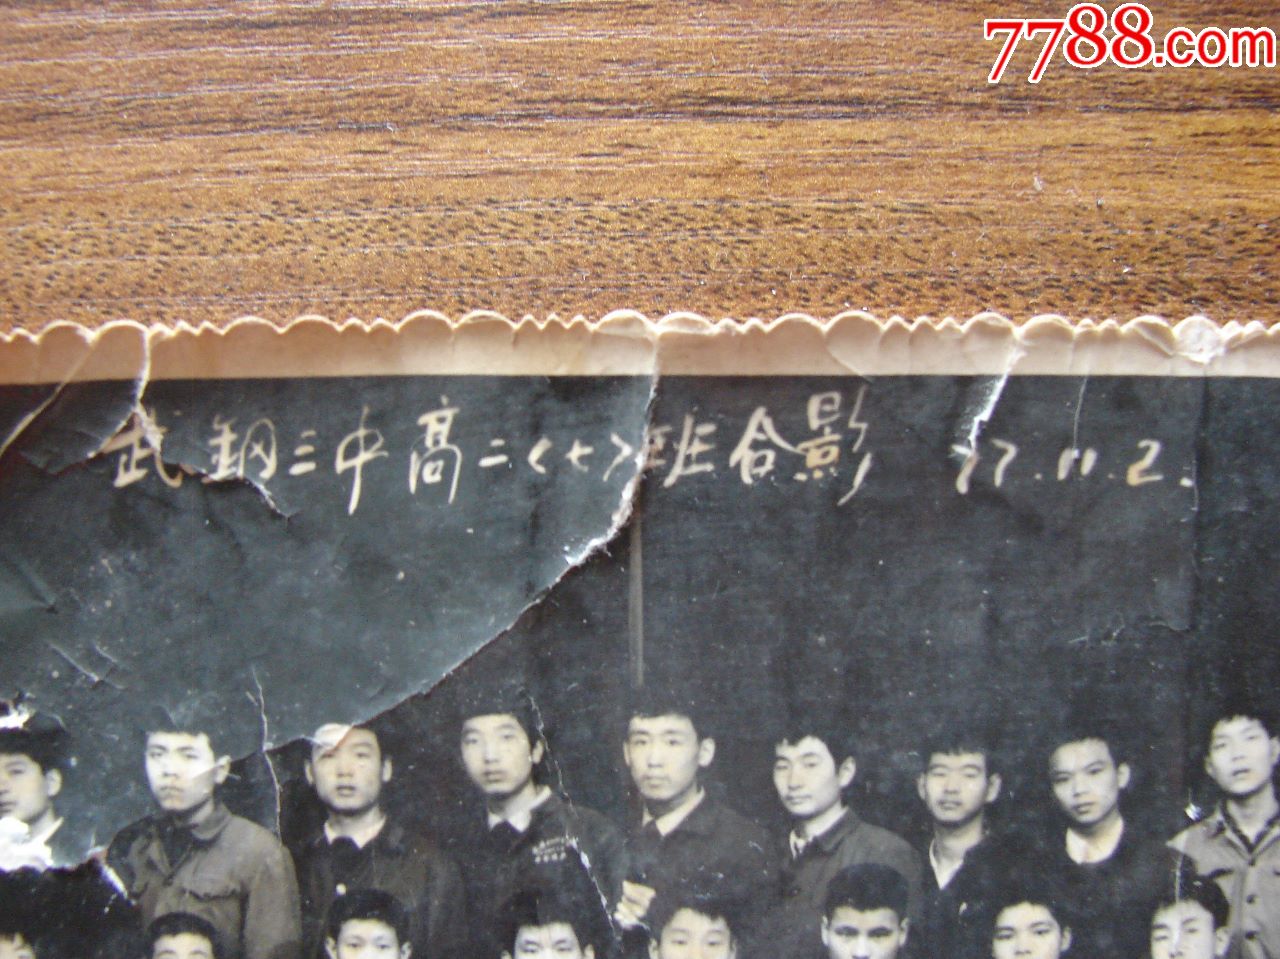 7788.com
武鋼三中高二<七>班合影 77.11.2.